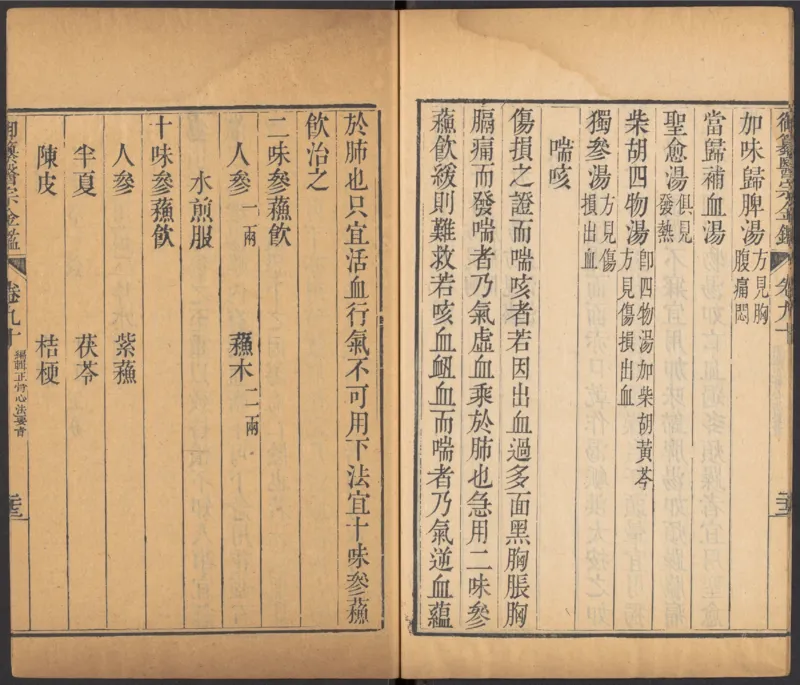 加味歸脾湯 方見胸腹痛悶
當歸補血湯
聖愈湯 俱見發熱
柴胡四物湯 卽四物湯加柴胡黃芩方見傷損出血
獨參湯 方見傷損出血
喘咳
傷損之證而喘咳者若因出血過多面黑胸脹胸
膈痛而發喘者乃氣虛血乘於肺也急用二味參
蘓飲緩則難救若咳血衂血而喘者乃氣逆血蘊
於肺也只宜活血行氣不可用下法宜十味參蘓
飲治之
二味參蘓飲
人參 一兩 蘓木 二兩
水煎服
十味參蘓飲
人參 紫蘓
半夏 茯苓
陳皮 桔梗
御纂醫宗金鑑 卷九十 編輯正骨心法要旨 二十三